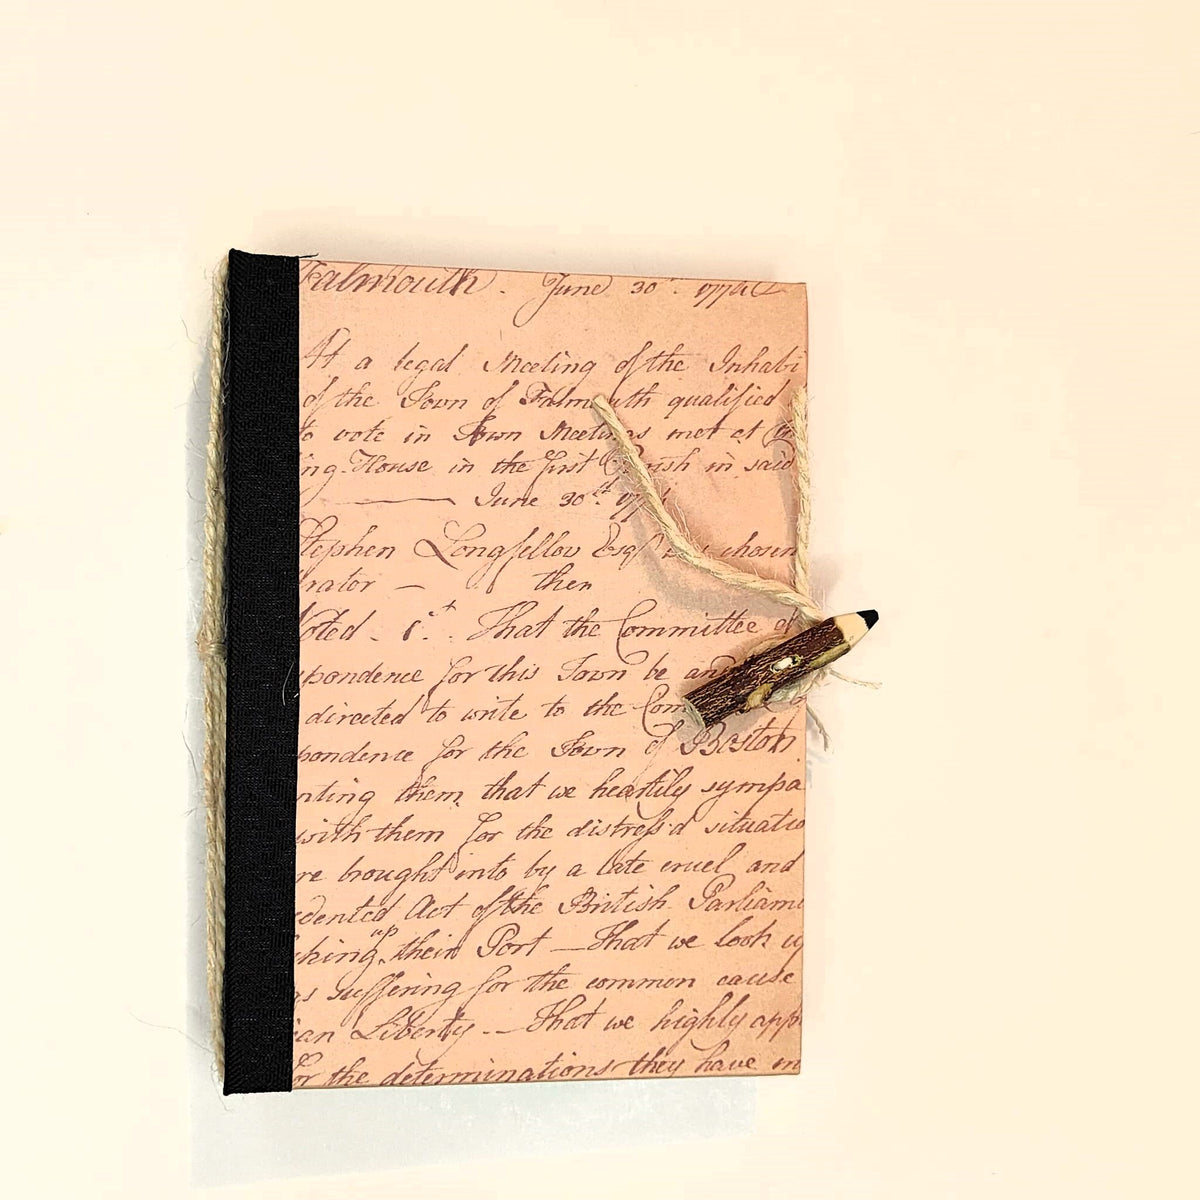 Falmouth . June 30th. 1774
At a legal Meeting of the Inhabi
of the Town of Falmouth qualified
to vote in Town Meetings met at
ing-House in the first Parish in said
June 30th 1774
Stephen Longfellow Esqr was chosen
rator — then
Voted . 1st. That the Committee of
spondence for this Town be and
directed to write to the Com
pondence for the Town of Boston
nting them, that we heartily sympa
with them for the distress'd situatio
re brought into by a late cruel and
edented Act of the British Parliame
cking up their Port — That we look u
as suffering for the common cause
ian Liberty — That we highly app
for the determinations they have m